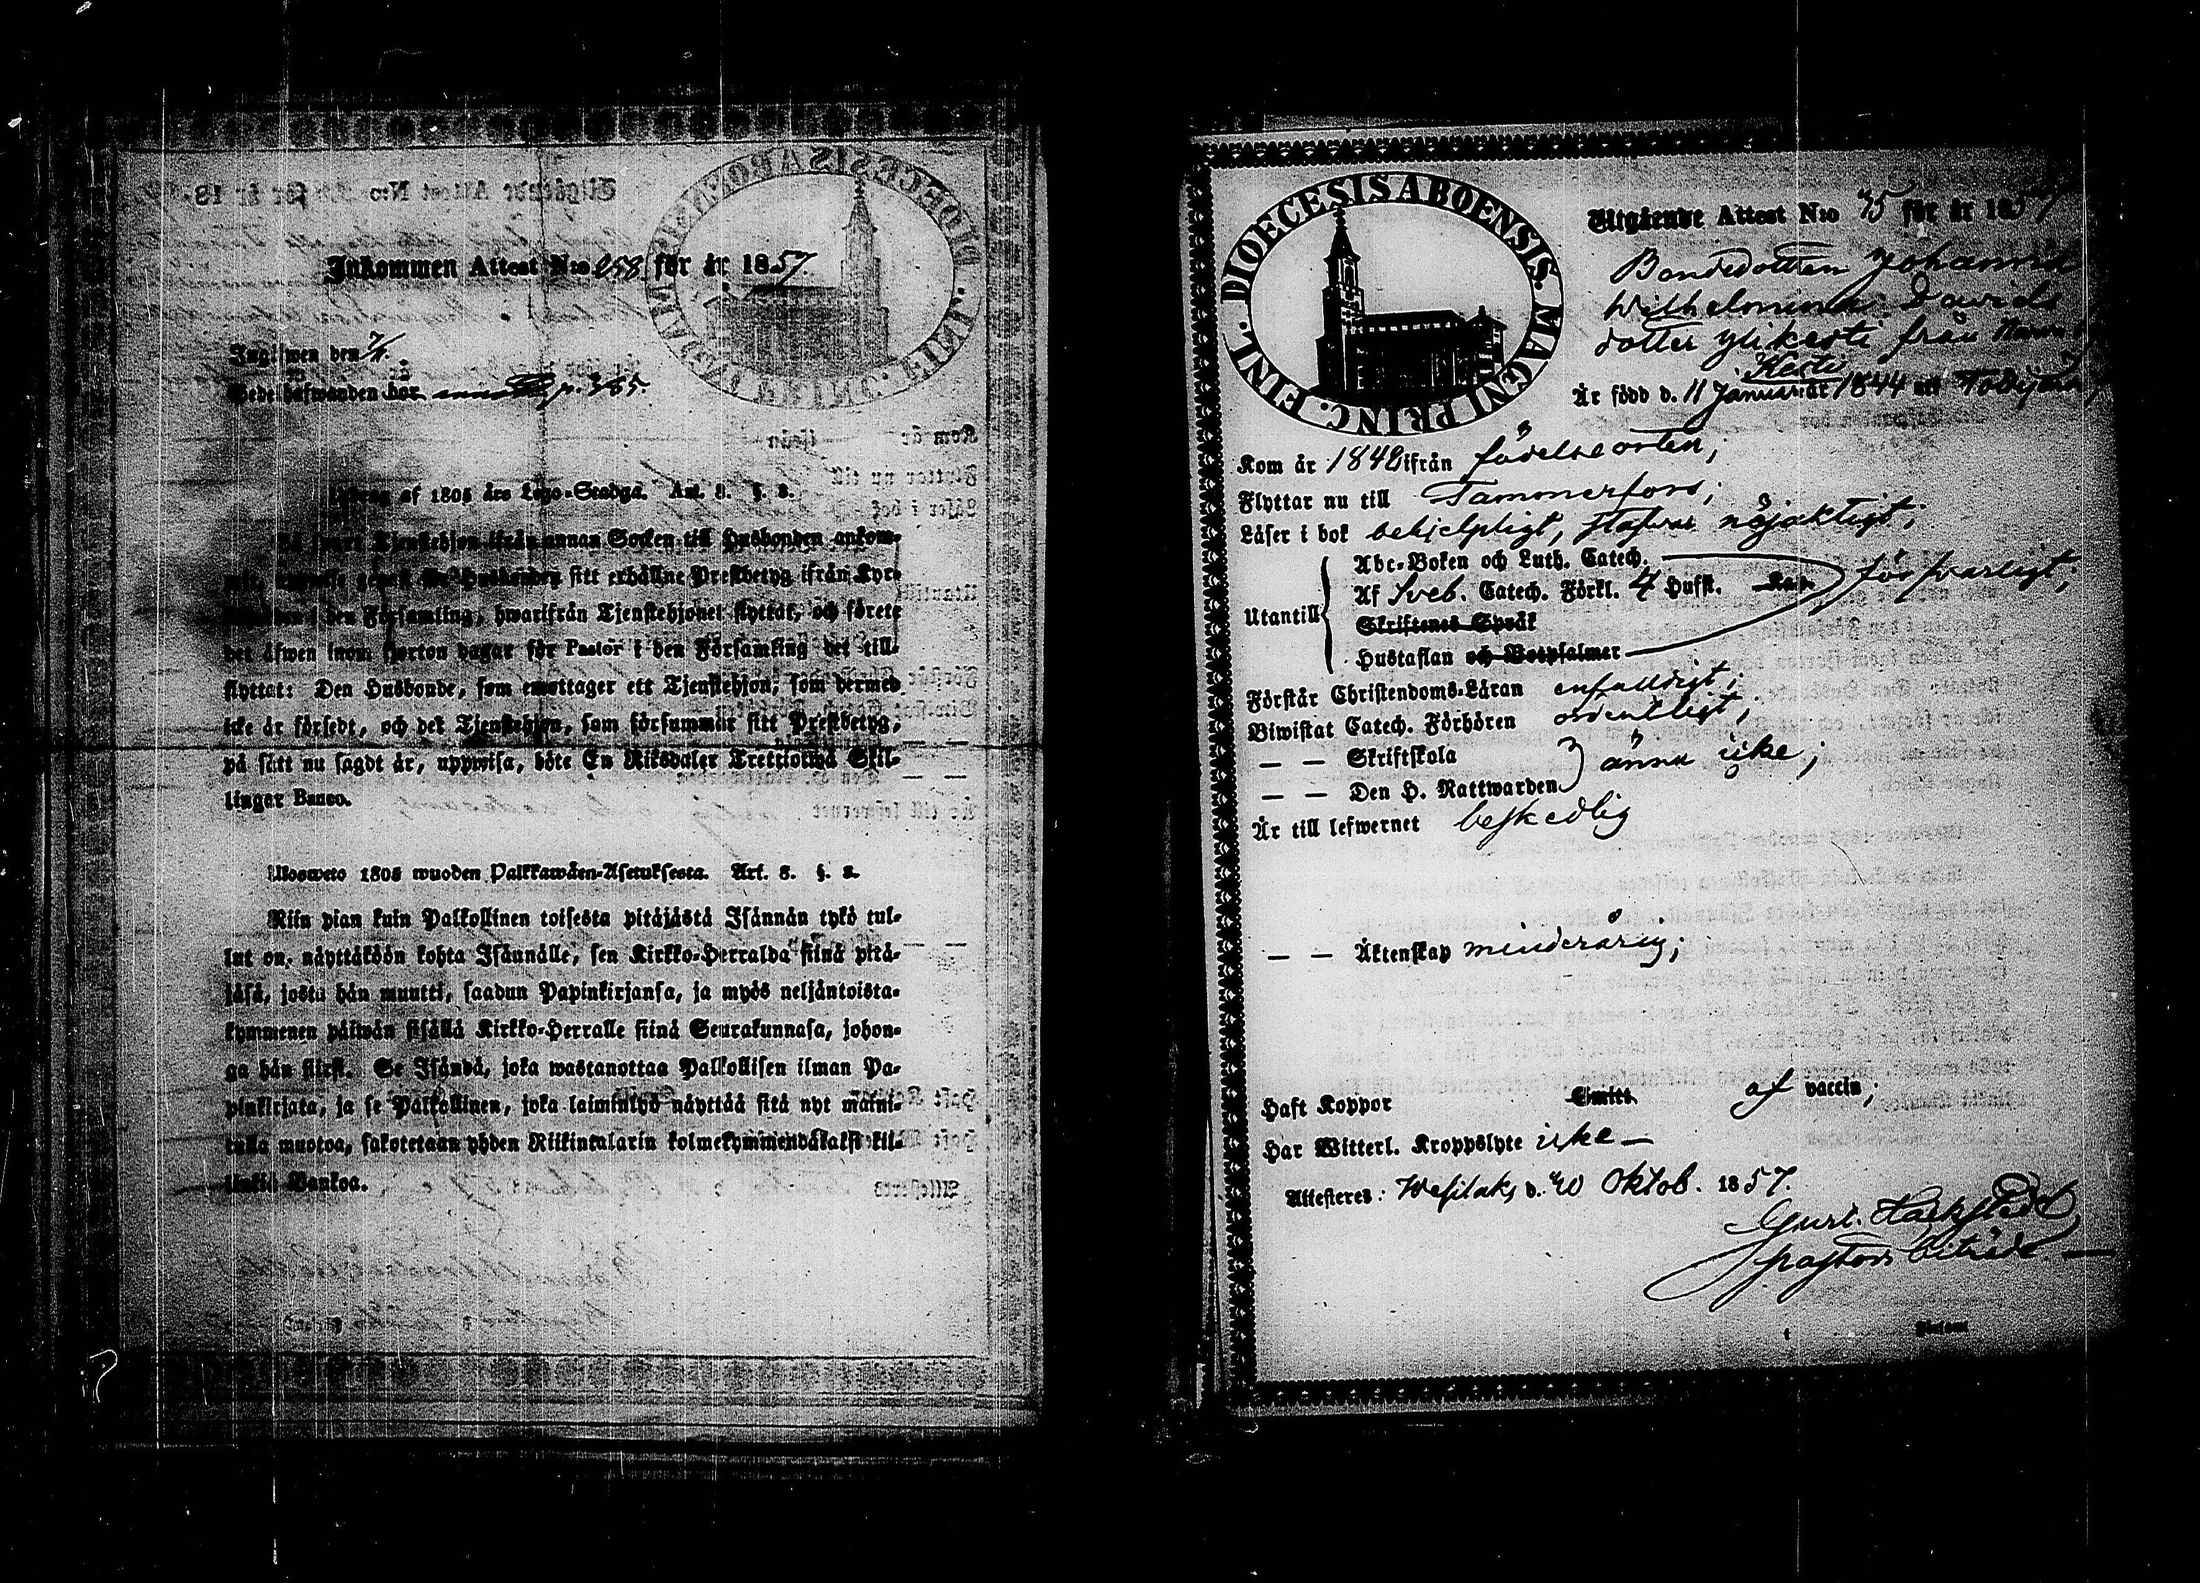 Inkommen Attest N:o 258 för år 1857.
Ingifwen den 7/11.
Bede hafwanden bor p. 365.
Utdrag af 1805 års Lego-Stadga. Art. 8. §. 8.
Så snart Tjenstehjon ifrån annan Socken till Husbonden ankom-
mit, sitt erhållne Prestbetyg ifrån Kyr-
i den Församling, hwarifrån Tjenstehjonet flyttat, och förete
det äfwen inom fjorton dagar för Pastor i den Församling det till-
flyttat: Den Husbonde, som emottager ett Tjenstehjon, som dermed
icke är försedt, och det Tjenstehjon, som försummar sitt Prestbetyg,
på sätt nu sagdt är, uppwisa, böte En Riksdaler Trettiotwå Skil-
lingar Banco.
Ulosweto 1805 wuoden Palkkawäen-Asetuksesta. Art. 8. §. 8.
Niin pian kuin Palkollinen toisesta pitäjästä Isännän tykö tul-
lut on, näyttäköön kohta Isännälle, sen Kirkko-Herralda siinä pitä-
jäsä, josta hän muutti, saadun Papinkirjansa, ja myös neljäntoista-
kymmenen päiwän sisällä Kirkko-Herralle siinä Seurakunnasa, johon-
ga hän siirsi. Se Isändä, joka wastanottaa Palkollisen ilman Pa-
pinkirjata, ja se Palkollinen, joka laiminlyö näyttää sitä nyt maini-
tulla muotoa, sakotetaan yhden Riikintalarin kolmekymmendäkaksi kil-
lingiä Bankoa.
DIOECESIS ABOENSIS. MAGNI PRINC. FINL.
Utgående Attest N:o 75 för år 1857
Bondedottren Johanna
Wilhelmina Davids
dotter Ylikesti från
Kesti
Är född d. 11 Januari år 1844 uti
Kom år 1848 ifrån födelseorten;
Flyttar nu till Tammerfors;
Läser i bok behjelpligt, stafvar nöjaktigt;
Utantill
Abc-Boken och Luth. Catech.
Af Sveb. Catech. Förkl. 4 Hufst. Kap. försvarligt;
Skriftenes Språk
Hustaflan och Botpsalmer
Förstår Christendoms-Läran enfaldigt;
Biwistat Catech. Förhören ordentligt;
— — Skriftskola
ännu icke;
— — Den H. Nattwarden
Är till lefwernet beskedlig
— — Äktenskap minderårig;
Haft Koppor Smitt. af vaccin;
Har Witterl. Kroppslyte icke —
Attesteras: Wesilaks d. 20 Oktob. 1857.